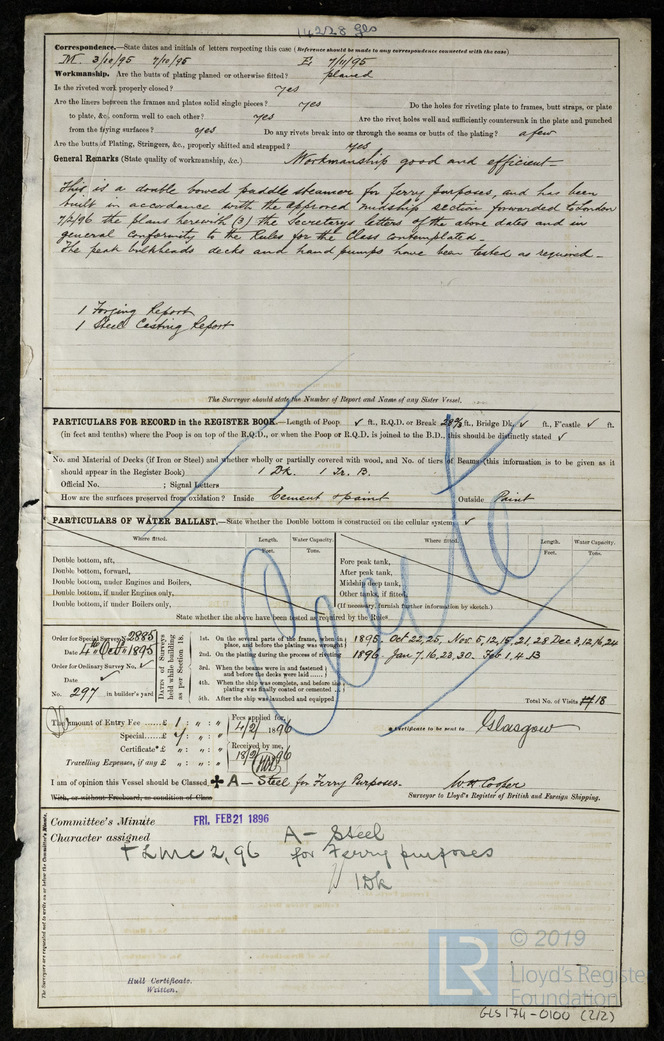 14228 Gls
Correspondence.—State dates and initials of letters respecting this case (Reference should be made to any correspondence connected with the case)
M. 3/10/95 7/10/95 E. 7/11/95
Workmanship. Are the butts of plating planed or otherwise fitted? planed
Is the riveted work properly closed? yes
Are the liners between the frames and plates solid single pieces? yes Do the holes for riveting plate to frames, butt straps, or plate
to plate, &c., conform well to each other? yes Are the rivet holes well and sufficiently countersunk in the plate and punched
from the faying surfaces? yes Do any rivets break into or through the seams or butts of the plating? a few
Are the butts of Plating, Stringers, &c., properly shifted and strapped? yes
General Remarks (State quality of workmanship, &c.) Workmanship good and efficient—
This is a double bowed paddle steamer for Ferry purposes, and has been
built in accordance with the approved midship section forwarded to London
7/2/96 the plans herewith (3) the Secretarys letters of the above dates and in
general conformity to the Rules for the Class contemplated.
The peak bulkheads decks and hand pumps have been tested as required—
1 Forging Report
1 Steel Casting Report
The Surveyor should state the Number of Report and Name of any Sister Vessel.
PARTICULARS FOR RECORD in the REGISTER BOOK.—Length of Poop ✓ ft., R.Q.D. or Break ft., Bridge Dk. ✓ ft., F'castle ✓ ft.
(in feet and tenths) where the Poop is on top of the R.Q.D., or when the Poop or R.Q.D. is joined to the B.D., this should be distinctly stated ✓
No. and Material of Decks (if Iron or Steel) and whether wholly or partially covered with wood, and No. of tiers of Beams (this information is to be given as it
should appear in the Register Book) 1 Dk. 1 Tr. B.
Official No. ; Signal Letters
How are the surfaces preserved from oxidation? Inside Cement & paint Outside Paint
PARTICULARS OF WATER BALLAST.—State whether the Double bottom is constructed on the cellular system ✓
Where fitted. Length. Water Capacity. Where fitted. Length. Water Capacity.
Feet. Tons. Feet. Tons.
Double bottom, aft, Fore peak tank,
Double bottom, forward, After peak tank,
Double bottom, under Engines and Boilers, Midship deep tank,
Double bottom, if under Engines only, Other tanks, if fitted,
Double bottom, if under Boilers only, (If necessary, furnish further information by sketch.)
State whether the above have been tested as required by the Rules
Order for Special Survey No. 2885
Date 4th Octr 1895
Order for Ordinary Survey No. ✓
Date ✓
No. 297 in builder's yard
DATES of Surveys held while building as per Section 18.
1st. On the several parts of the frame, when in place, and before the plating was wrought
1895. Oct 22, 25, Nov. 5, 12, 15, 21, 28 Dec 3, 12, 16, 24
2nd. On the plating during the process of riveting
1896. Jan 7, 16, 23, 30. Feb 1, 4, 13
3rd. When the beams were in and fastened and before the decks were laid
4th. When the ship was complete, and before the plating was finally coated or cemented
5th. After the ship was launched and equipped
Total No. of Visits 18
The amount of Entry Fee £ 1 : " : "
Special £ 4 : " : "
Certificate £ " : " : "
Travelling Expenses, if any £ " : " : "
Fees applied for, 4/2/1896
Received by me, 18/2/96
Certificate to be sent to Glasgow
I am of opinion this Vessel should be Classed ✠ A— Steel for Ferry Purposes.
With, or without Freeboard, as condition of Class
W. H. Cooper
Surveyor to Lloyd's Register of British and Foreign Shipping.
Committee's Minute FRI. FEB 21 1896
Character assigned A— Steel
+ LMC 2, 96 for Ferry purposes
1 Dk
The Surveyors are requested not to write on or below the Committee's Minute.
Hull Certificate.
Written.
LR © 2019
Lloyd's Register
Foundation
GLS 174-0100 (2/2)